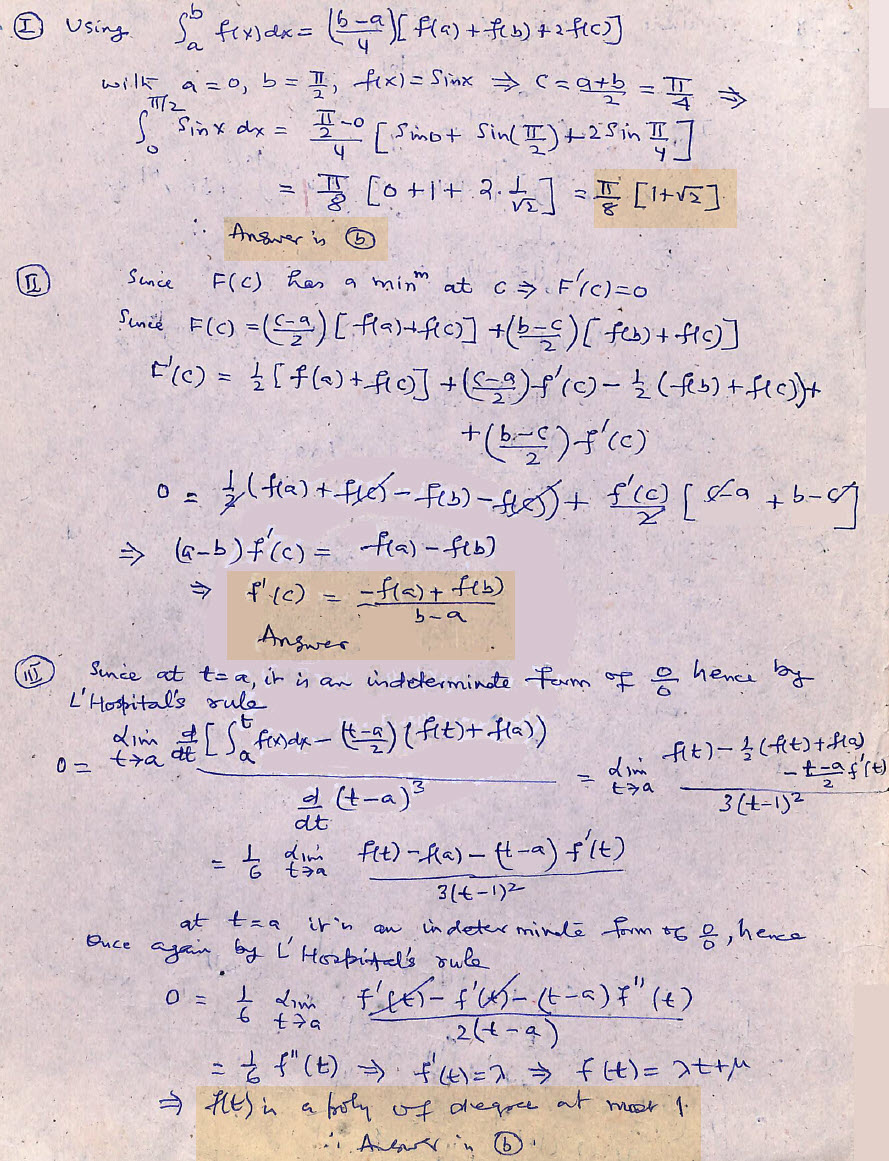 (I) Using ∫_a^b f(x)dx = ((b-a)/4)[f(a)+f(b)+2f(c)]
with a=0, b=π/2, f(x)=Sinx ⇒ c=(a+b)/2=π/4 ⇒
∫_0^{π/2} Sinx dx = ((π/2-0)/4)[Sin0+ Sin(π/2)+2Sin π/4]
= π/8 [0+1+ 2·1/√2] = π/8 [1+√2]
∴ Answer is (b)
(II) Since F(c) has a min^m at c ⇒ F'(c)=0
Since F(c) =((c-a)/2)[f(a)+f(c)] +((b-c)/2)[f(b)+f(c)]
F'(c) = 1/2[f(a)+f(c)] +((c-a)/2)f'(c)- 1/2(f(b)+f(c))+
+((b-c)/2)f'(c)
0 = 1/2(f(a)+f(c)-f(b)-f(c))+ f'(c)/2 [c-a+b-c]
⇒ (a-b)f'(c) = f(a)-f(b)
⇒ f'(c) = (-f(a)+f(b))/(b-a)
Answer
(III) Since at t=a, it is an indeterminate form of 0/0 hence by
L'Hospital's rule
0 = Lim_{t→a} d/dt[∫_a^t f(x)dx-((t-a)/2)(f(t)+f(a)) / d/dt (t-a)^3 = Lim_{t→a} f(t)-1/2(f(t)+f(a) -(t-a)/2 f'(t) / 3(t-1)^2
= 1/6 Lim_{t→a} f(t)-f(a)-(t-a)f'(t) / 3(t-1)^2
at t=a it is an indeterminate form of 0/0, hence
Once again by L'Hospital's rule
0 = 1/6 Lim_{t→a} f'(t)-f'(t)-(t-a)f''(t) / 2(t-a)
= 1/6 f''(t) ⇒ f'(t)=λ ⇒ f(t)= λt+μ
⇒ f(t) is a poly of degree at most 1.
∴ Answer is (b).